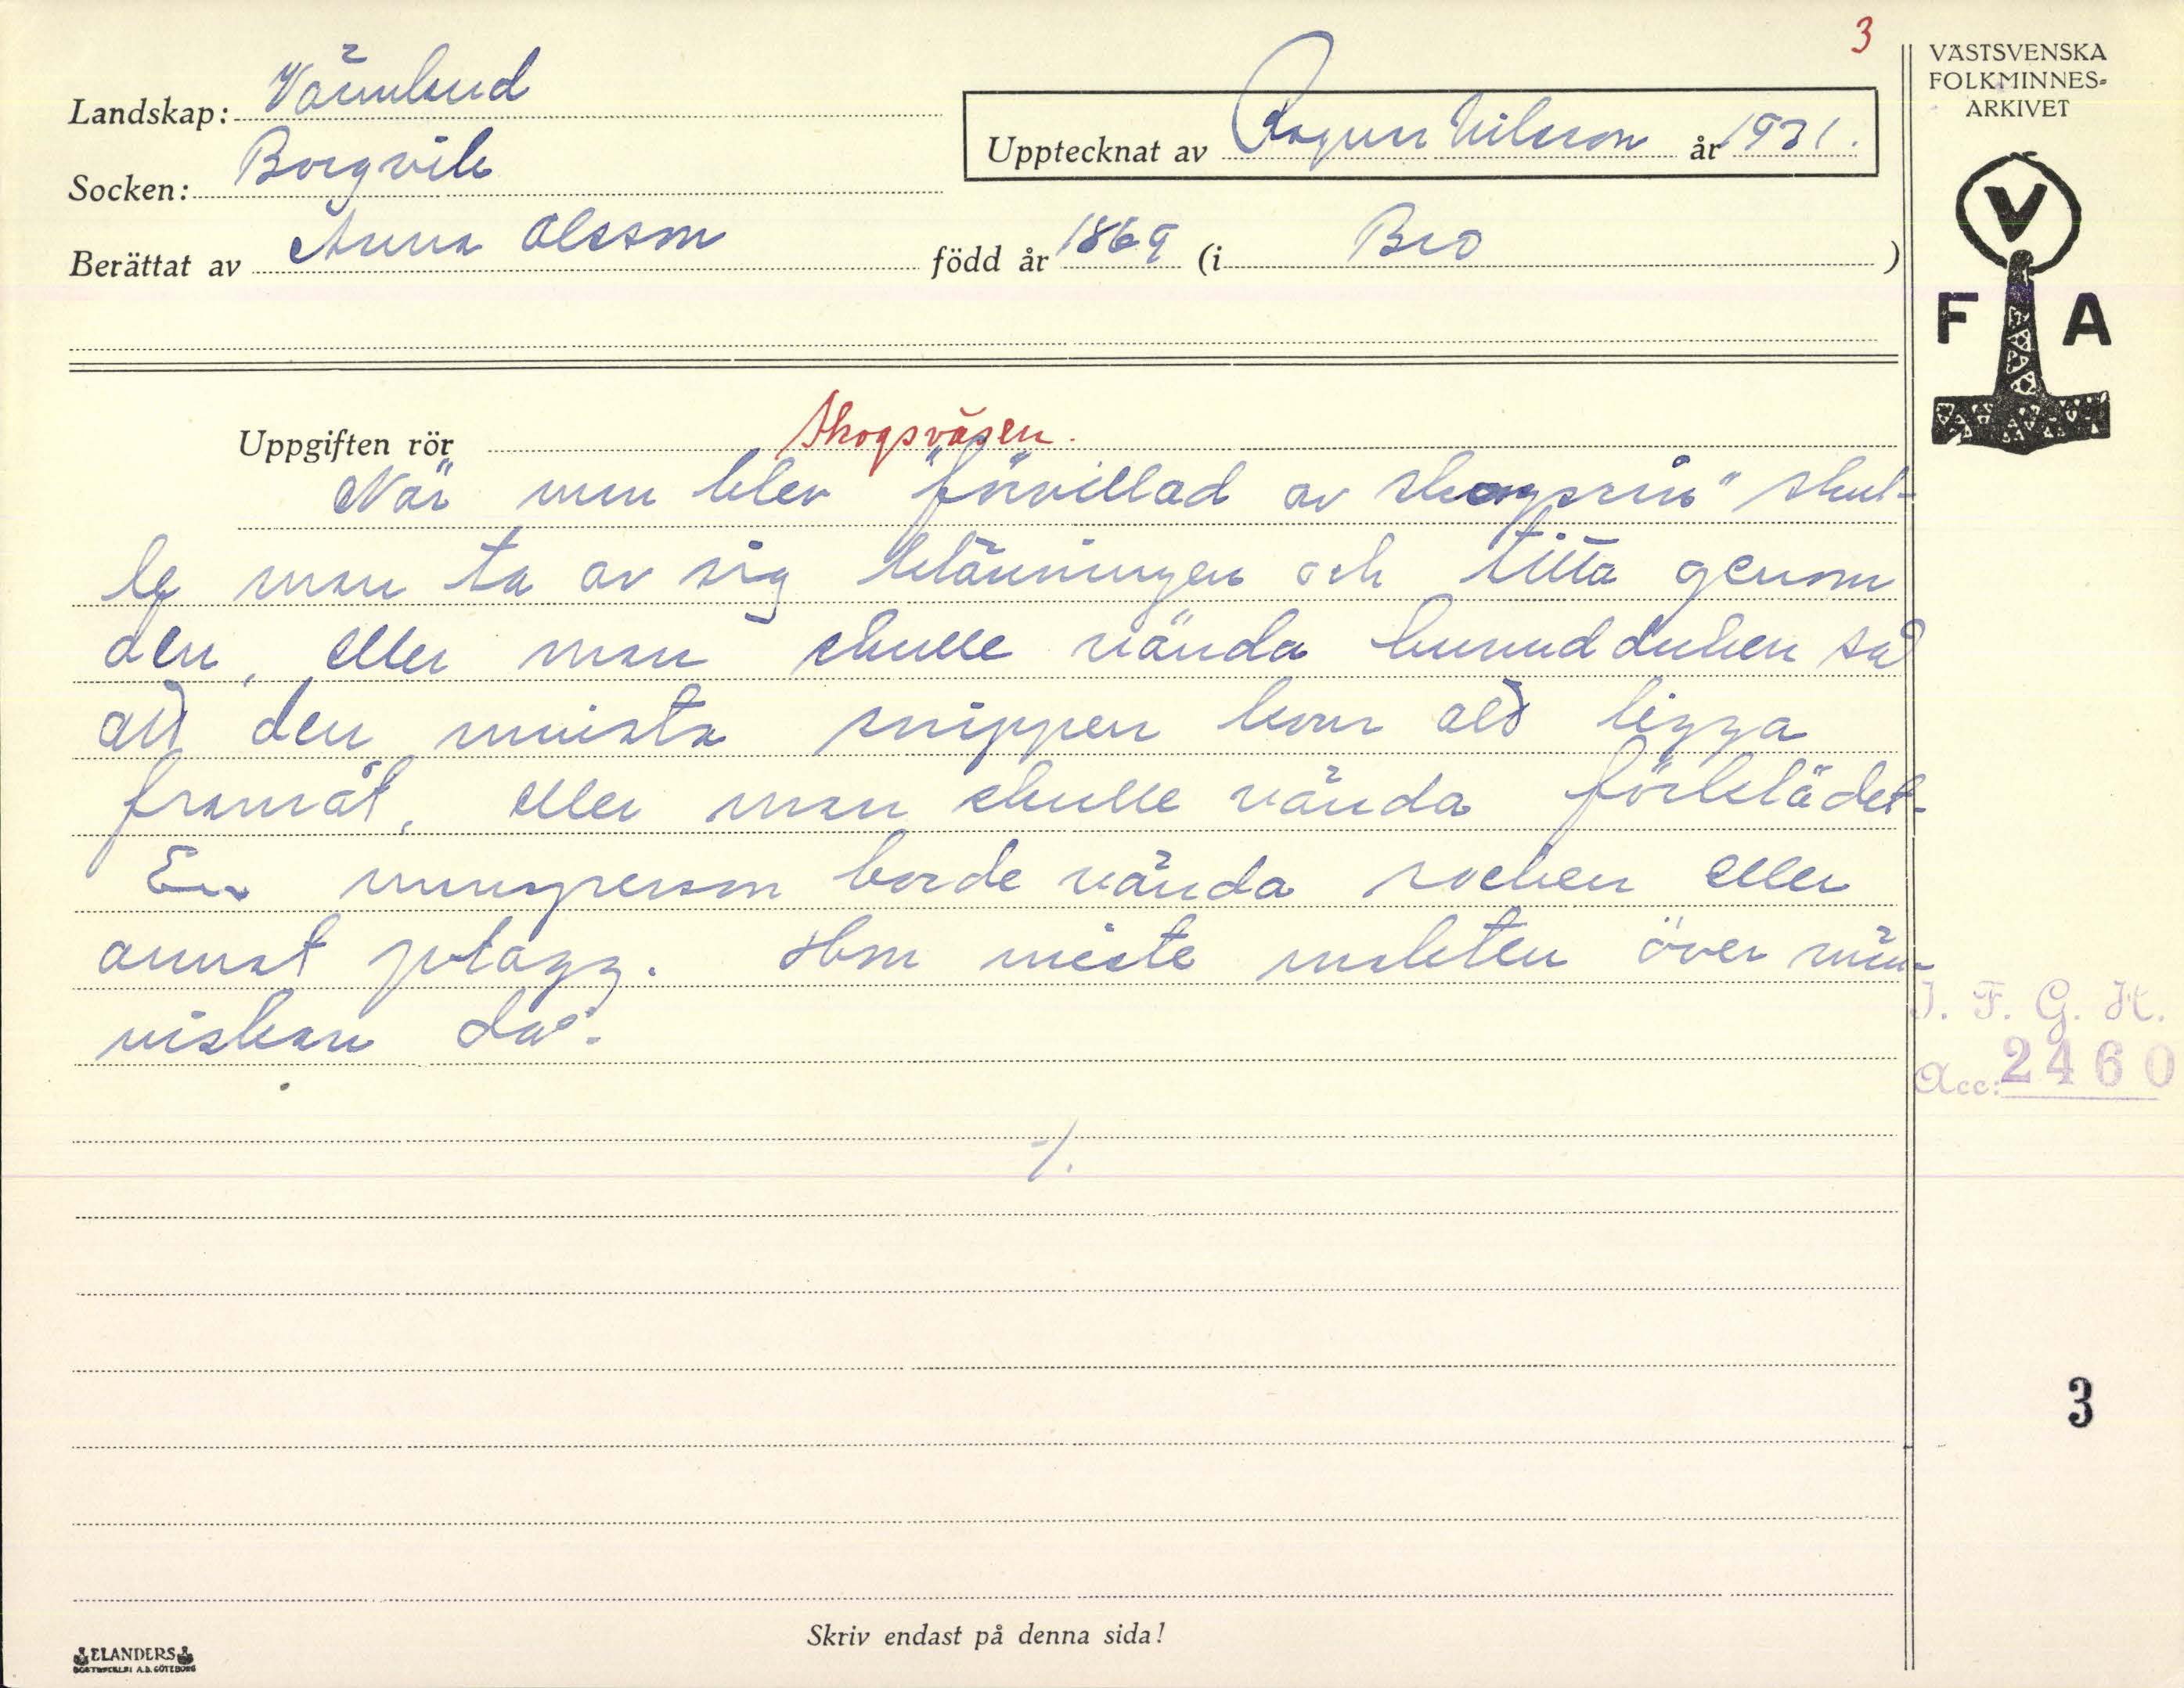 3
VÄSTSVENSKA
FOLKMINNES=
ARKIVET
Landskap: Värmland
Upptecknat av Ragnar Nilsson år 1931.
Socken: Borgvik
Berättat av Anna Olsson född år 1869 (i Bro )
V
F A
Uppgiften rör Skogsväsen.
När man blev "förvillad av skogsrås" skul-
le man ta av sig klänningen och titta genom
den, eller man skulle vända huvudduken så
att den snippen kom att ligga
framåt, eller man skulle vända förklädet.
En mansperson borde vända rocken eller
annat plagg. Hon miste makten över män-
niskan då.
I. F. G. H.
Acc: 2460
-/.
3
Skriv endast på denna sida!
ELANDERS
BOKTRYCKERI A.B. GÖTEBORG